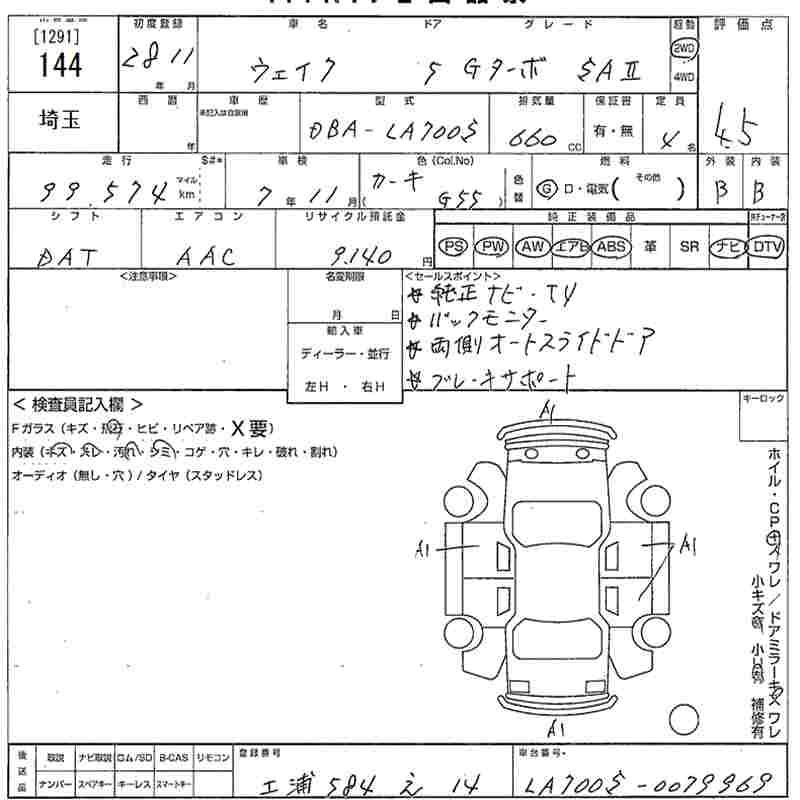 [1291]
144
初度登録
28 11
年 月
車名 ドア グレード
ウェイク 5 Gターボ SAⅡ
駆動
2WD
4WD
評価点
4.5
埼玉
西暦
年
車歴
未記入は自家用
型式
DBA-LA700S
排気量
660 CC
保証書
有・無
定員
4 名
走行
99,574
マイル
km
$#*
車検
7 年 11 月
色 (Col,No)
カーキ
( G55 )
色替
燃料
G D・電気( その他 )
外装
B
内装
B
シフト
DAT
エアコン
AAC
リサイクル預託金
9,140 円
純正装備品
PS PW AW エアB ABS 革 SR ナビ DTV
<注意事項>
名変期限
月 日
輸入車
ディーラー・並行
左H ・ 右H
<セールスポイント>
☆ 純正ナビ・TV
☆ バックモニター
☆ 両側オートスライドドア
☆ ブレーキサポート
< 検査員記入欄 >
Fガラス (キズ・飛石・ヒビ・リペア跡・X要)
内装 (キズ・スレ・汚れ・シミ・コゲ・穴・キレ・破れ・割れ)
オーディオ (無し・穴) / タイヤ (スタッドレス)
キーロック
A1
A1
A1
A1
ホイル・CPキズワレ / ドアミラーキズワレ
小キズ有 小凹有 補修有
後送品
取説 ナビ取説 ロム/SD B-CAS リモコン
ナンバー スペアキー キーレス スマートキー
登録番号
土浦 584 え 14
車台番号
LA700S-0079969